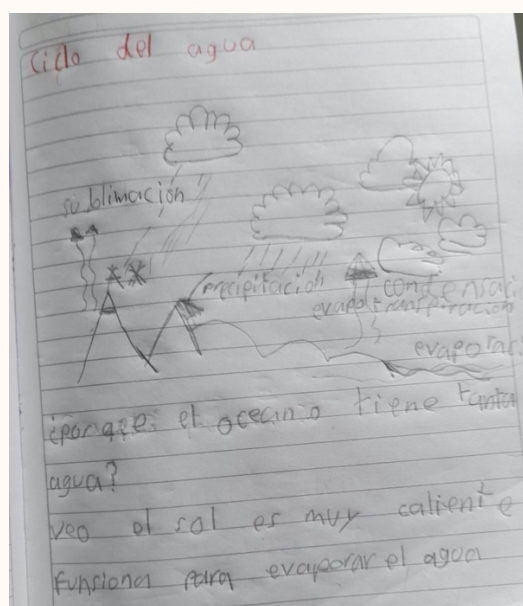 Ciclo del agua
sublimación
precipitación
condensaci
evapotranspiración
evaporac
¿porqee el oceano tiene tanta
agua?
veo el sol es muy caliente
funciona para evaporar el agua